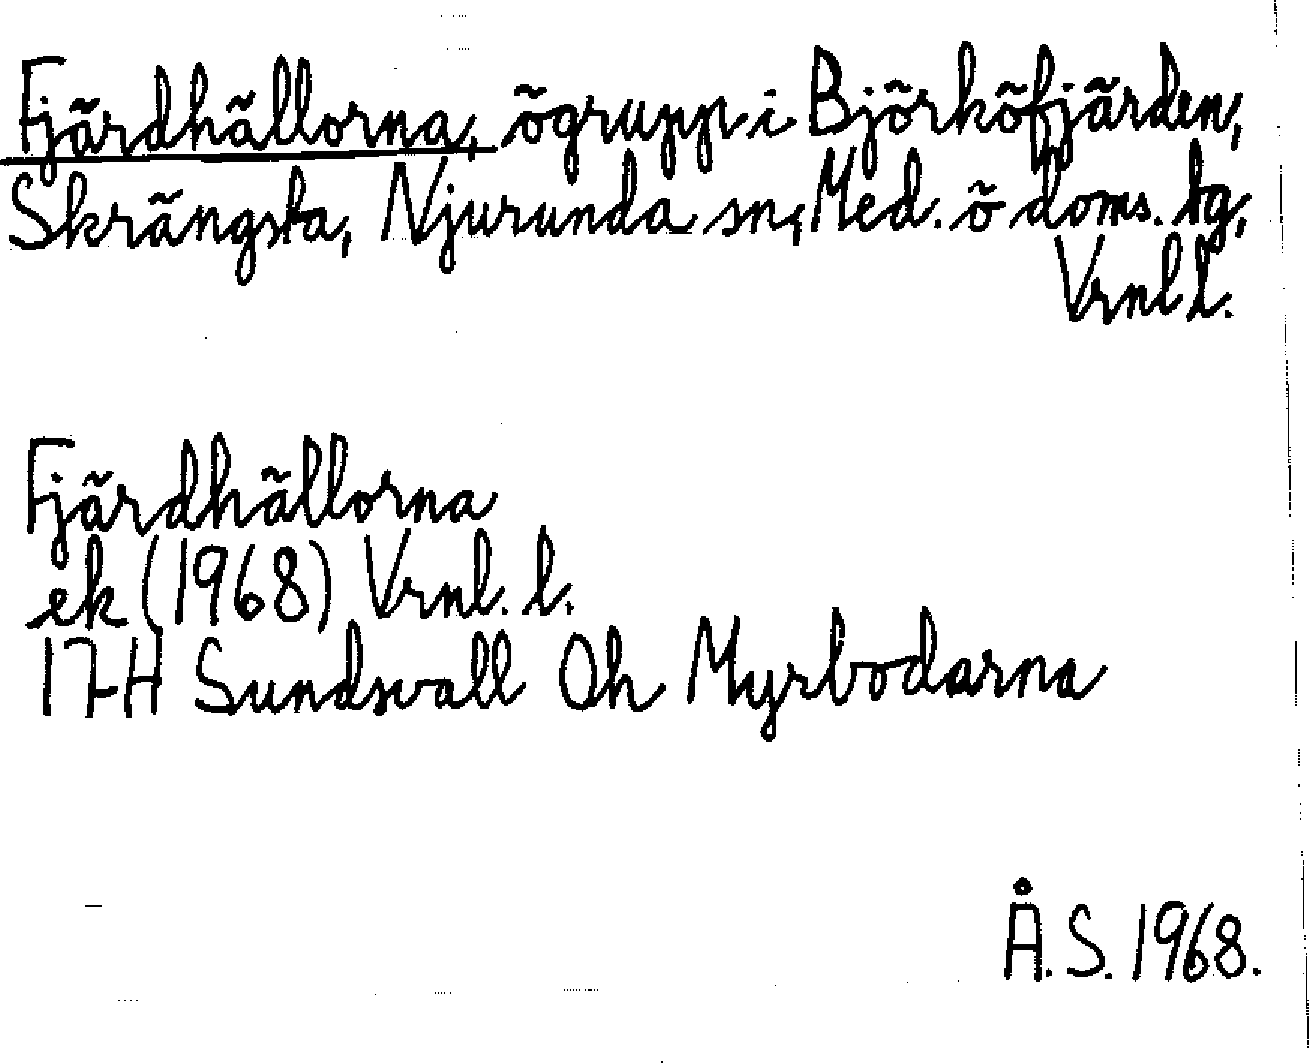 Fjärdhällorna, ögrupp i Björköfjärden,
Skrängsta, Njurunda sn, Med. ö doms. tg,
Vrnl l.
Fjärdhällorna
ek (1968) Vrnl. l.
17H Sundsvall Oh Myrbodarna
Å.S. 1968.